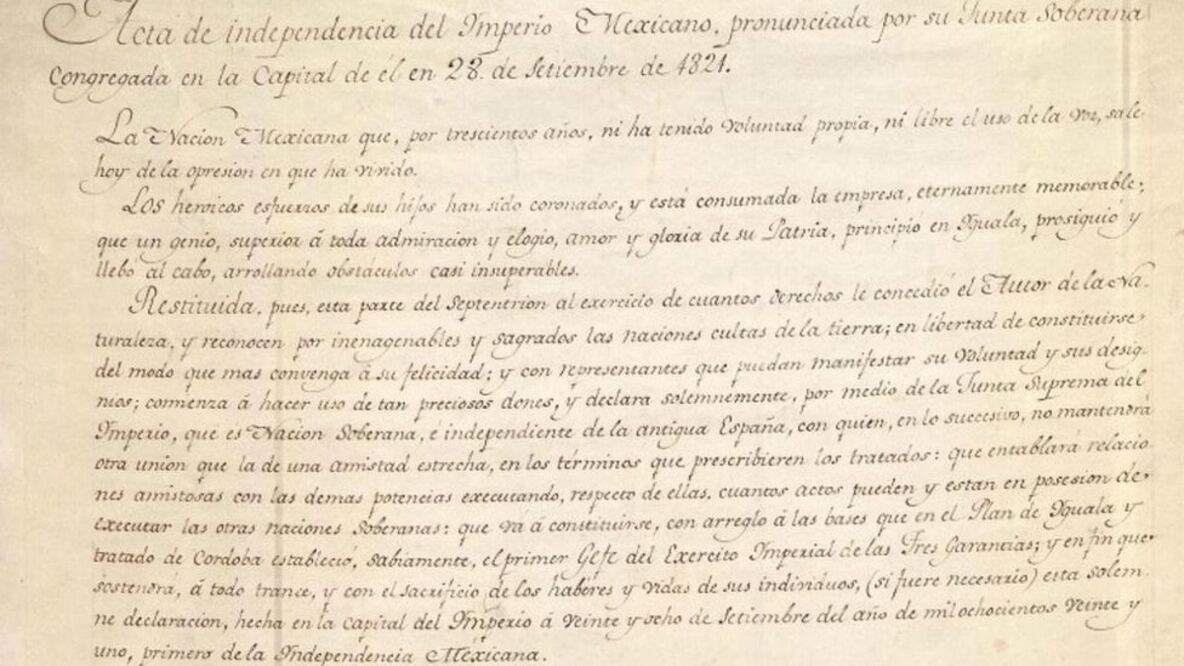 Acta de independencia del Ymperio Mexicano, pronunciada por su Junta Soberana
Congregada en la Capital de él en 28 de Setiembre de 1821.
La Nacion Mexicana que, por trescientos años, ni ha tenido voluntad propia, ni libre el uso de la voz, sale
hoy de la opresion en que ha vivido.
Los heroicos esfuerzos de sus hijos han sido coronados, y está consumada la empresa, eternamente memorable,
que un genio, superior á toda admiracion y elogio, amor y gloria de su Patria, principió en Iguala, prosiguió y
llebó al cabo, arrollando obstáculos casi insuperables.
Restituida, pues, esta parte del Septentrion al exercicio de cuantos derechos le concedió el Autor de la Na-
turaleza, y reconocen por inenagenables y sagrados las naciones cultas de la tierra; en libertad de constituirse
del modo que mas convenga á su felicidad; y con representantes que puedan manifestar su voluntad y sus desig-
nios; comienza á hacer uso de tan preciosos dones, y declara solemnemente, por medio de la Junta Suprema del
Ymperio, que es Nacion Soberana, é independiente de la antigua España, con quien, en lo succesivo, no mantendrá
otra union que la de una amistad estrecha, en los términos que prescribieren los tratados: que entablará relacio-
nes amistosas con las demas potencias executando, respecto de ellas, cuantos actos pueden y estan en posesion de
executar las otras naciones soberanas: que vá á constituirse, con arreglo á las bases que en el Plan de Iguala y
tratado de Cordoba estableció, sabiamente, el primer Gefe del Exercito Ymperial de las Tres Garantias; y en fin que
sostendrá, á todo trance, y con el sacrificio de los haberes y vidas de sus individuos, (si fuere necesario) esta solem-
ne declaracion, hecha en la capital del Ymperio á veinte y ocho de Setiembre del año de mil ochocientos veinte y
uno, primero de la Independencia Mexicana.